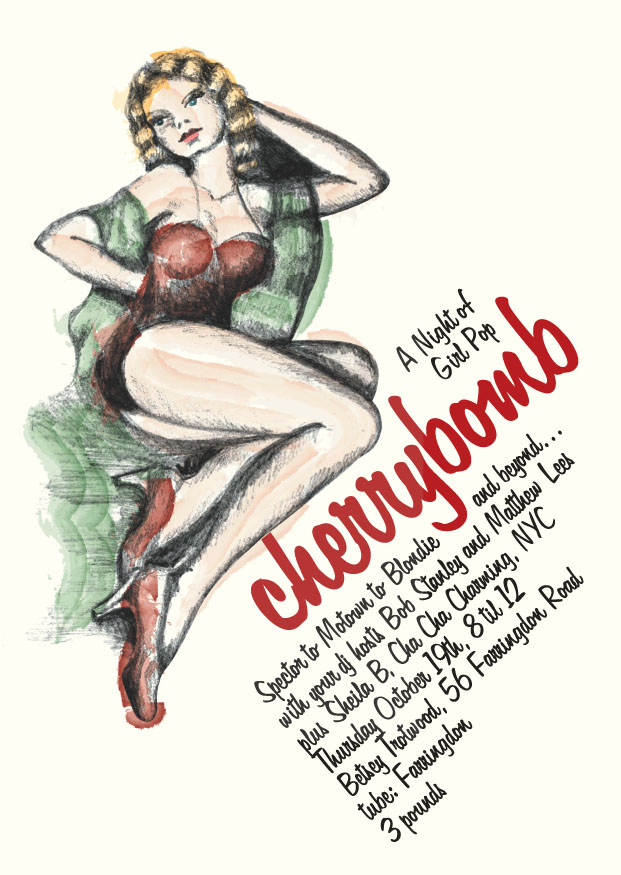 A Night of
Girl Pop
cherrybomb
Spector to Motown to Blondie and beyond...
with your dj hosts Bob Stanley and Matthew Lees
plus Sheila B, Cha Cha Charming, NYC
Thursday October 19th, 8 til 12
Betsey Trotwood, 56 Farringdon Road
tube: Farringdon
3 pounds